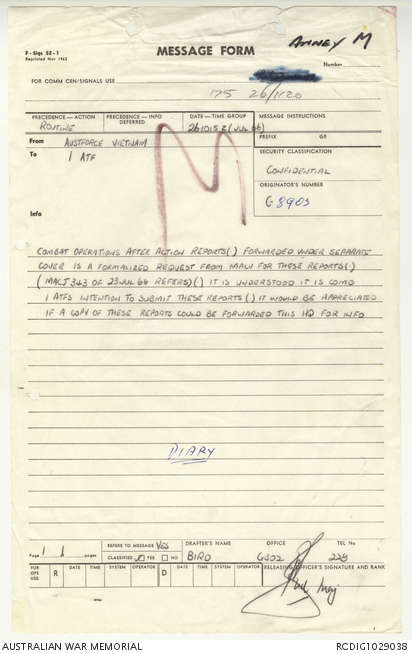 F-Sigs 52-1
Reprinted Nov 1965
MESSAGE FORM
ANNEX M
Number
FOR COMM CEN/SIGNALS USE
175 26/1120
PRECEDENCE—ACTION
ROUTINE
PRECEDENCE—INFO
DEFERRED
DATE—TIME GROUP
261015Z (JUL 66)
MESSAGE INSTRUCTIONS
PREFIX GR
From AUSTFORCE VIETNAM
To 1 ATF
SECURITY CLASSIFICATION
CONFIDENTIAL
ORIGINATOR'S NUMBER
G 8903
Info
M
COMBAT OPERATIONS AFTER ACTION REPORTS(.) FORWARDED UNDER SEPARATE
COVER IS A FORMALIZED REQUEST FROM MACV FOR THESE REPORTS(.)
(MACJ 343 OF 23 JUL 66 REFERS)(.) IT IS UNDERSTOOD IT IS COMD
1 ATFS INTENTION TO SUBMIT THESE REPORTS(.) IT WOULD BE APPRECIATED
IF A COPY OF THESE REPORTS COULD BE FORWARDED THIS HQ FOR INFO
DIARY
Page 1 of 1 pages
REFERS TO MESSAGE YES
CLASSIFIED YES NO
DRAFTER'S NAME
BIRD
OFFICE
GSO2
TEL No
229
FOR OPS USE
R DATE TIME SYSTEM OPERATOR
D DATE TIME SYSTEM OPERATOR
RELEASING OFFICER'S SIGNATURE AND RANK
AUSTRALIAN WAR MEMORIAL
RCDIG1029038